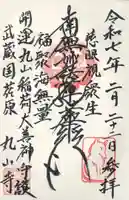 令和七年二月二十三日参拝
慈眼視衆生
南無妙法蓮華経
福聚海無量
開運丸山稲荷大善神守護
武蔵国荏原
丸山寺